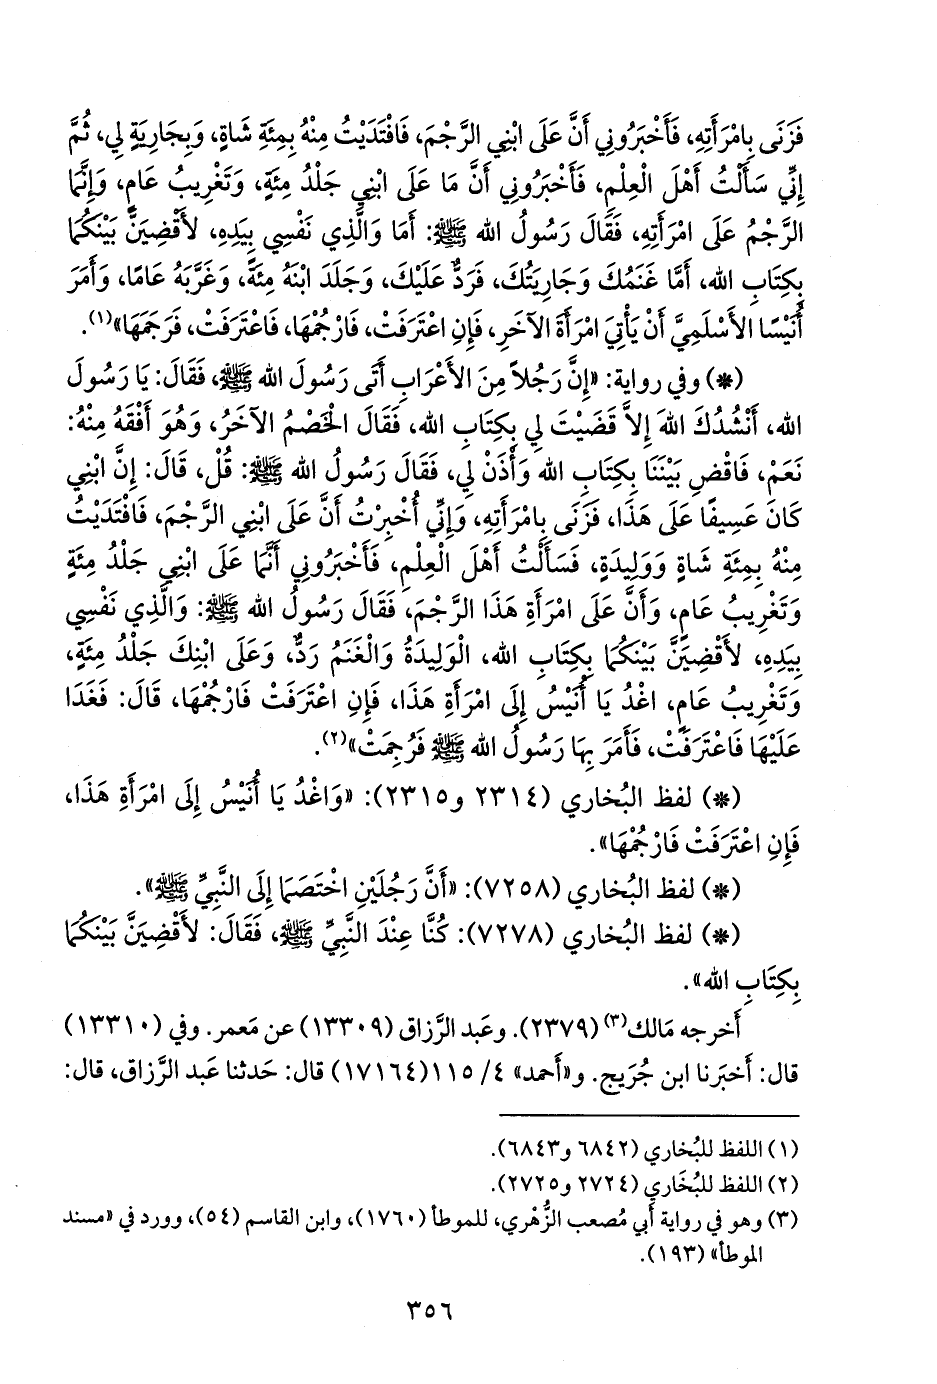 فَزَنَى بِامْرَأَتِهِ، فَأَخْبَرُونِي أَنَّ عَلَى ابْنِي الرَّجْمَ، فَافْتَدَيْتُ مِنْهُ بِمِئَةِ شَاةٍ، وَبِجَارِيَةٍ لِي، ثُمَّ
إِنِّي سَأَلْتُ أَهْلَ الْعِلْمِ، فَأَخْبَرُونِي أَنَّ مَا عَلَى ابْنِي جَلْدُ مِئَةٍ، وَتَغْرِيبُ عَامٍ، وَإِنَّمَا
الرَّجْمُ عَلَى امْرَأَتِهِ، فَقَالَ رَسُولُ الله ﷺ: أَمَا وَالَّذِي نَفْسِي بِيَدِهِ، لأَقْضِيَنَّ بَيْنَكُمَا
بِكِتَابِ الله، أَمَّا غَنَمُكَ وَجَارِيَتُكَ، فَرَدٌّ عَلَيْكَ، وَجَلَدَ ابْنَهُ مِئَةً، وَغَرَّبَهُ عَامًا، وَأَمَرَ
أُنَيْسًا الأَسْلَمِيَّ أَنْ يَأْتِيَ امْرَأَةَ الآخَرِ، فَإِنِ اعْتَرَفَتْ، فَارْجُمْهَا، فَاعْتَرَفَتْ، فَرَجَمَهَا»(١).
(*) وفي رواية: «إِنَّ رَجُلاً مِنَ الأَعْرَابِ أَتَى رَسُولَ الله ﷺ، فَقَالَ: يَا رَسُولَ
الله، أَنْشُدُكَ اللهَ إِلاَّ قَضَيْتَ لِي بِكِتَابِ الله، فَقَالَ الْخَصْمُ الآخَرُ، وَهُوَ أَفْقَهُ مِنْهُ:
نَعَمْ، فَاقْضِ بَيْنَنَا بِكِتَابِ الله وَأْذَنْ لِي، فَقَالَ رَسُولُ الله ﷺ: قُلْ، قَالَ: إِنَّ ابْنِي
كَانَ عَسِيفًا عَلَى هَذَا، فَزَنَى بِامْرَأَتِهِ، وَإِنِّي أُخْبِرْتُ أَنَّ عَلَى ابْنِي الرَّجْمَ، فَافْتَدَيْتُ
مِنْهُ بِمِئَةِ شَاةٍ وَوَلِيدَةٍ، فَسَأَلْتُ أَهْلَ الْعِلْمِ، فَأَخْبَرُونِي أَنَّمَا عَلَى ابْنِي جَلْدُ مِئَةٍ
وَتَغْرِيبُ عَامٍ، وَأَنَّ عَلَى امْرَأَةِ هَذَا الرَّجْمَ، فَقَالَ رَسُولُ الله ﷺ: وَالَّذِي نَفْسِي
بِيَدِهِ، لأَقْضِيَنَّ بَيْنَكُمَا بِكِتَابِ الله، الْوَلِيدَةُ وَالْغَنَمُ رَدٌّ، وَعَلَى ابْنِكَ جَلْدُ مِئَةٍ،
وَتَغْرِيبُ عَامٍ، اغْدُ يَا أُنَيْسُ إِلَى امْرَأَةِ هَذَا، فَإِنِ اعْتَرَفَتْ فَارْجُمْهَا، قَالَ: فَغَدَا
عَلَيْهَا فَاعْتَرَفَتْ، فَأَمَرَ بِهَا رَسُولُ الله ﷺ فَرُجِمَتْ»(٢).
(*) لفظ البُخاري (٢٣١٤ و٢٣١٥): «وَاغْدُ يَا أُنَيْسُ إِلَى امْرَأَةِ هَذَا،
فَإِنِ اعْتَرَفَتْ فَارْجُمْهَا».
(*) لفظ البُخاري (٧٢٥٨): «أَنَّ رَجُلَيْنِ اخْتَصَمَا إِلَى النَّبِيِّ ﷺ».
(*) لفظ البُخاري (٧٢٧٨): كُنَّا عِنْدَ النَّبِيِّ ﷺ، فَقَالَ: لأَقْضِيَنَّ بَيْنَكُمَا
بِكِتَابِ الله».
أَخرجه مَالك(٣) (٢٣٧٩). وعَبد الرَّزاق (١٣٣٠٩) عن مَعمر. وفي (١٣٣١٠)
قال: أَخبَرنا ابن جُرَيج. و«أَحمد» ٤/ ١١٥(١٧١٦٤) قال: حَدثنا عَبد الرَّزاق، قال:
(١) اللفظ للبُخاري (٦٨٤٢ و٦٨٤٣).
(٢) اللفظ للبُخَاري (٢٧٢٤ و٢٧٢٥).
(٣) وهو في رواية أَبي مُصعب الزُّهْري، للموطأ (١٧٦٠)، وابن القاسم (٥٤)، وورد في «مسند
الموطأ» (١٩٣).
٣٥٦